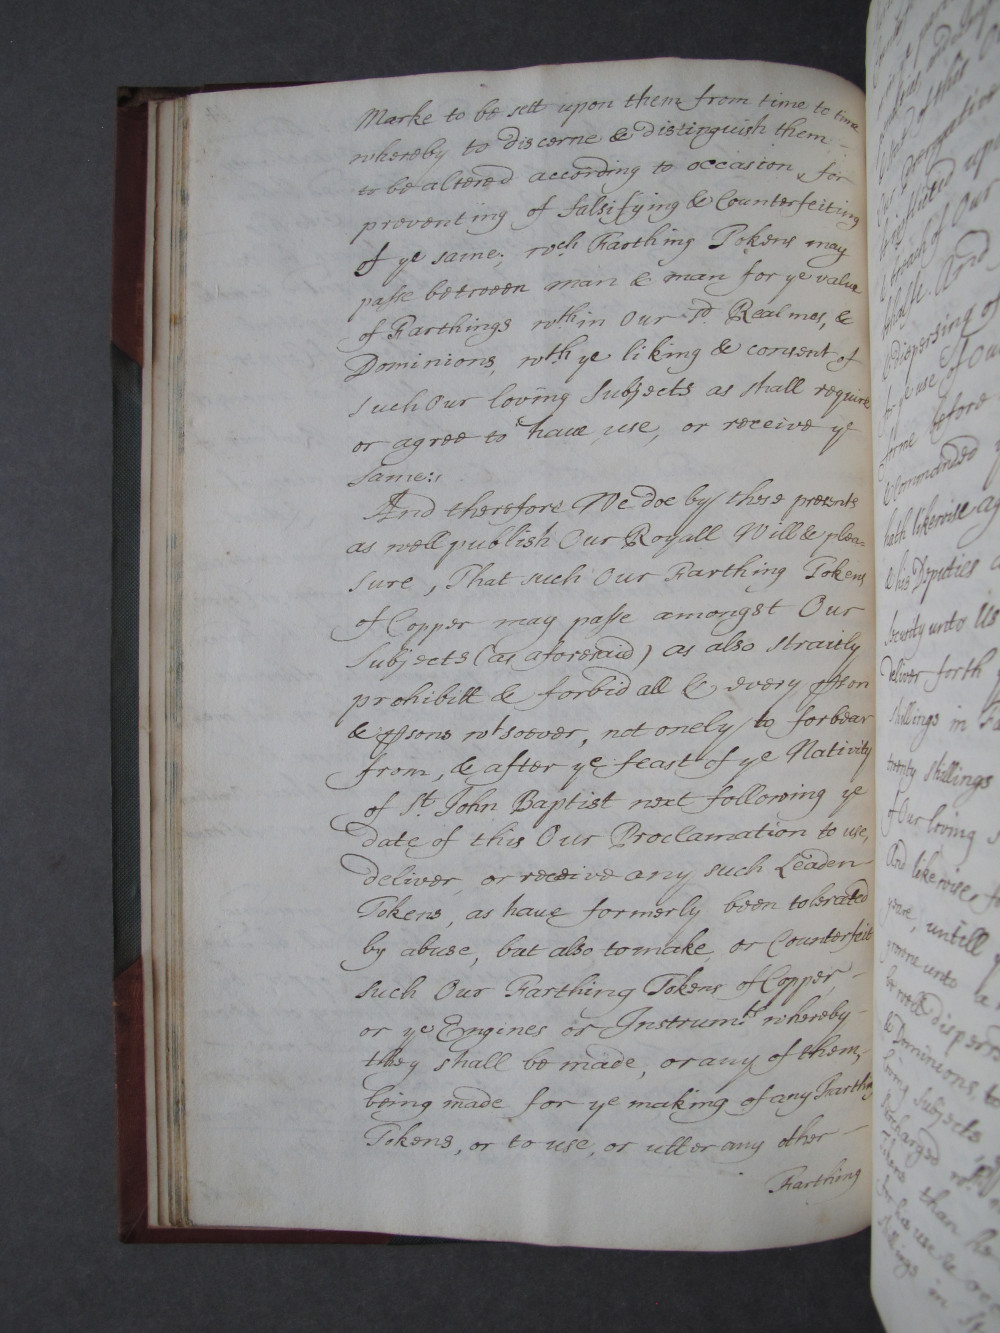 Marke to be sett upon them from time to time
whereby to discerne & distinguish them -
to be altered according to occasion, for
preventing of falsifying & Counterfeiting
of ye same; wch Farthing Tokens may
passe betweene man & man for ye value
of Farthings wthin Our sd. Realmes, &
Dominions, wth ye liking & consent of
such Our loving Subjects as shall require
or agree to have use, or receive ye
same:,
And therefore We doe by these presents
as well publish Our Royall Will & plea-
sure, That such Our Farthing Tokens
of Copper may passe amongst Our
Subjects (as aforesaid) as also straitly
prohibitt & forbid all & every pson
& psons wtsoever, not onely to forbear
from, & after ye feast of ye Nativity
of St. John Baptist next following ye
Date of this Our Proclamation to use,
deliver, or receive any such Leaden
Tokens, as have formerly been tolerated
by abuse, but also to make, or Counterfeit
such Our Farthing Tokens of Copper, -
or ye Engines or Instrumts. whereby -
they shall be made, or any of them, -
being made for ye making of any Farthing
Tokens, or to use, or utter any other -
Farthing
dispersing of
ye use of our
forme before
& commanded
hath likewise
& his Deputies
Security unto Us
deliver forth
shillings in
twenty shillings
of Our loving
And likewise
yeare, untill
yeares unto
be well dispersed
& Dominions, to
loving Subjects
than he